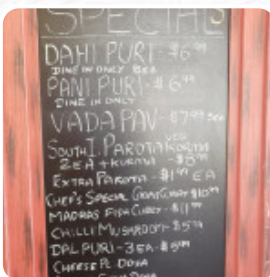 SPECIAL
DAHI PURI - $6.99
DINE IN ONLY 8EA
PANI PURI - $6.99
DINE IN ONLY
VADA PAV - $7.99 2EA
SOUTH I. PAROTA KORMA VEG
2EA + KURMA - $8.99
EXTRA PAROTA - $1.99 EA
CHEF'S SPECIAL GOAT CURRY $10.99
MADRAS FISH CURRY - $11.99
CHILLI MUSHROOM - $5.99
DAL PURI - 3EA - $5.99
CHEESE PL DOSA
DOSA